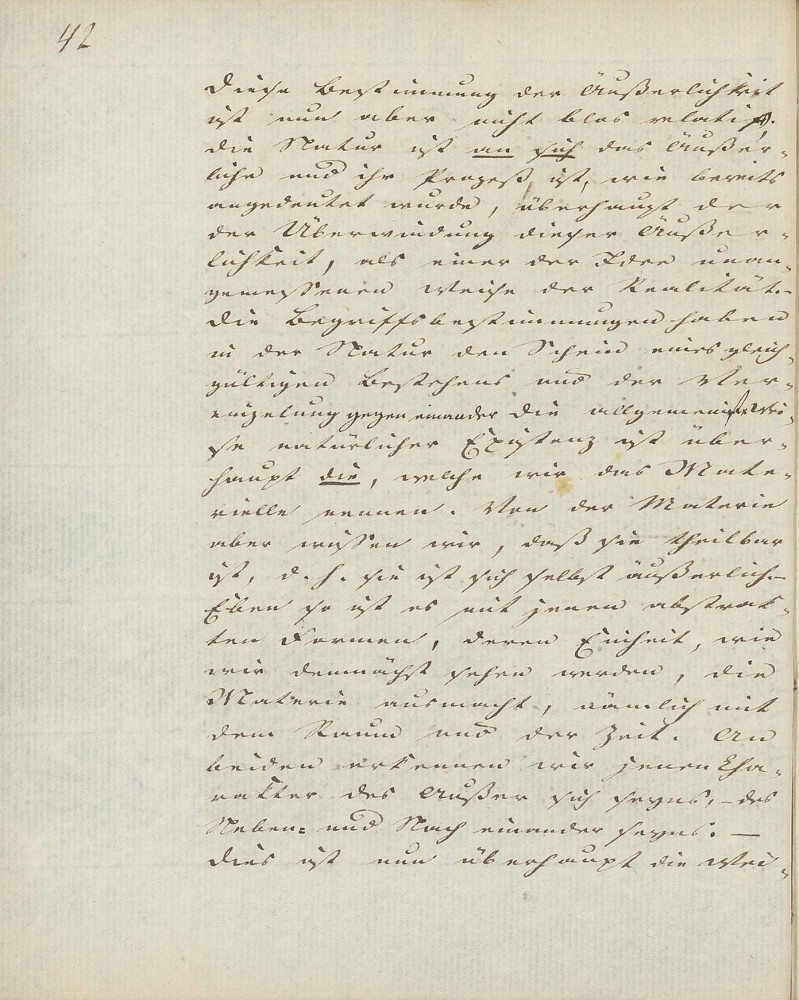 42
Diese Bestimmung der Äußerlichkeit
ist nun aber nicht blos relativ.
die Natur ist an sich das Äußer-
liche und ihr Prozeß ist, wie bereits
angedeutet wurde, überhaupt der
der Überwindung dieser Äußer-
lichkeit, als einer der Idee unan-
gemessenen Weise der Realität.-
Die Begriffsbestimmungen haben
in der Natur den Schein eines gleich-
gültigen Bestehens und der Ver-
einzelung gegen einander Die allgemeinste Wei-
se natürlicher Existenz ist über-
haupt die, welche wir das Mate-
rielle nennen. Von der Materie
aber wissen wir, daß sie theilbar
ist, d. h. sie ist sich selbst äußerlich.-
Eben so ist es mit jenen abstrak-
ten Formen, deren Einheit, wie
wir demnächst sehen werden, die
Materie ausmacht, nämlich mit
dem Raum und der Zeit. An
beiden erkennen wir jenen Cha-
rakter des Außer sich seyns, – des
Neben= und Nach einander seyns. —
Dies ist nun überhaupt die Wei-